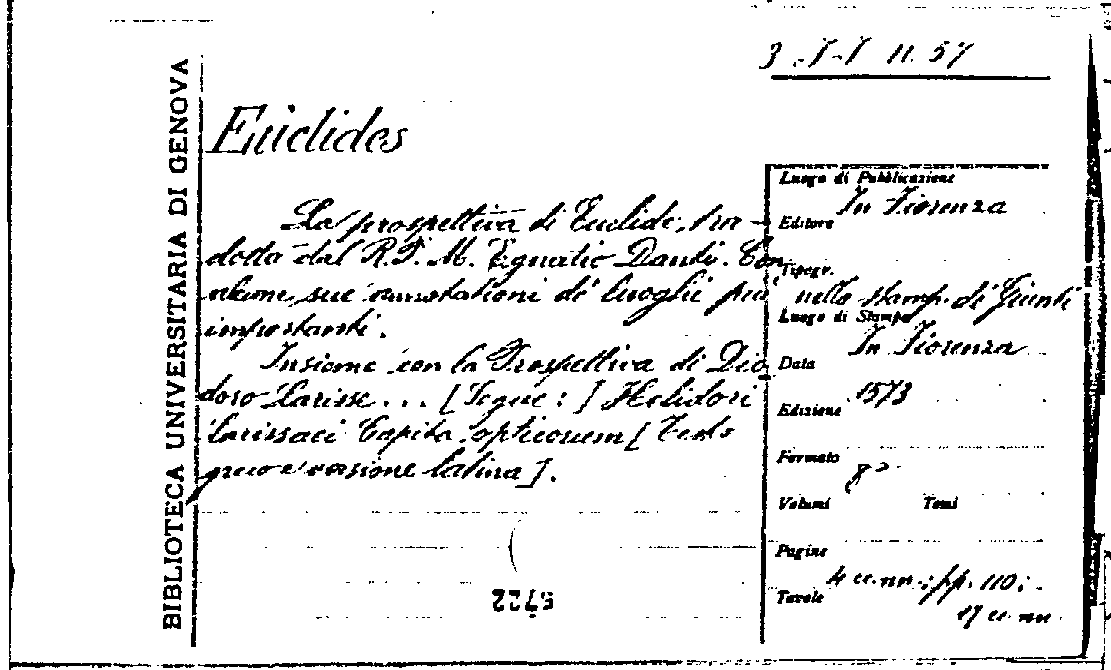 BIBLIOTECA UNIVERSITARIA DI GENOVA
3 . I-I II. 57
Euclides
La prospettiva di Euclide, tra-
dotta dal R.P. M. Egnatio Danti. Con
alcune sue annotationi di luoghi più
importanti.
Insieme con la Prospettiva di Dio
doro Larisse... [Segue:] Heliodori
Larissaei Capita opticorum [Testo
greco e versione latina].
Luogo di Pubblicazione
In Fiorenza
Editore
Tipogr.
nella stamp. di Giunti
Luogo di Stampa
In Fiorenza
Data
1573
Edizione
Formato
8°
Volumi Tomi
Pagine
4 cc. nn.; pp. 110;
Tavole
17 cc. nn.